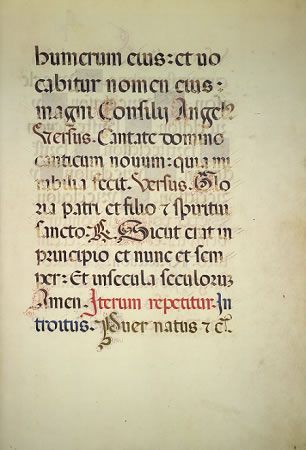 humerum eius: et uo
cabitur nomen eius:
magni Consilii Angelꝰ
Versus. Cantate domino
canticum nouum: quia mi
rabilia fecit. Versus. Glo
ria patri et filio ⁊ spiritui
sancto. ℟. Sicut erat in
principio et nunc et sem
per: Et in secula seculorum
Amen. Iterum repetitur. In
troitus. Puer natus ⁊ c̄.